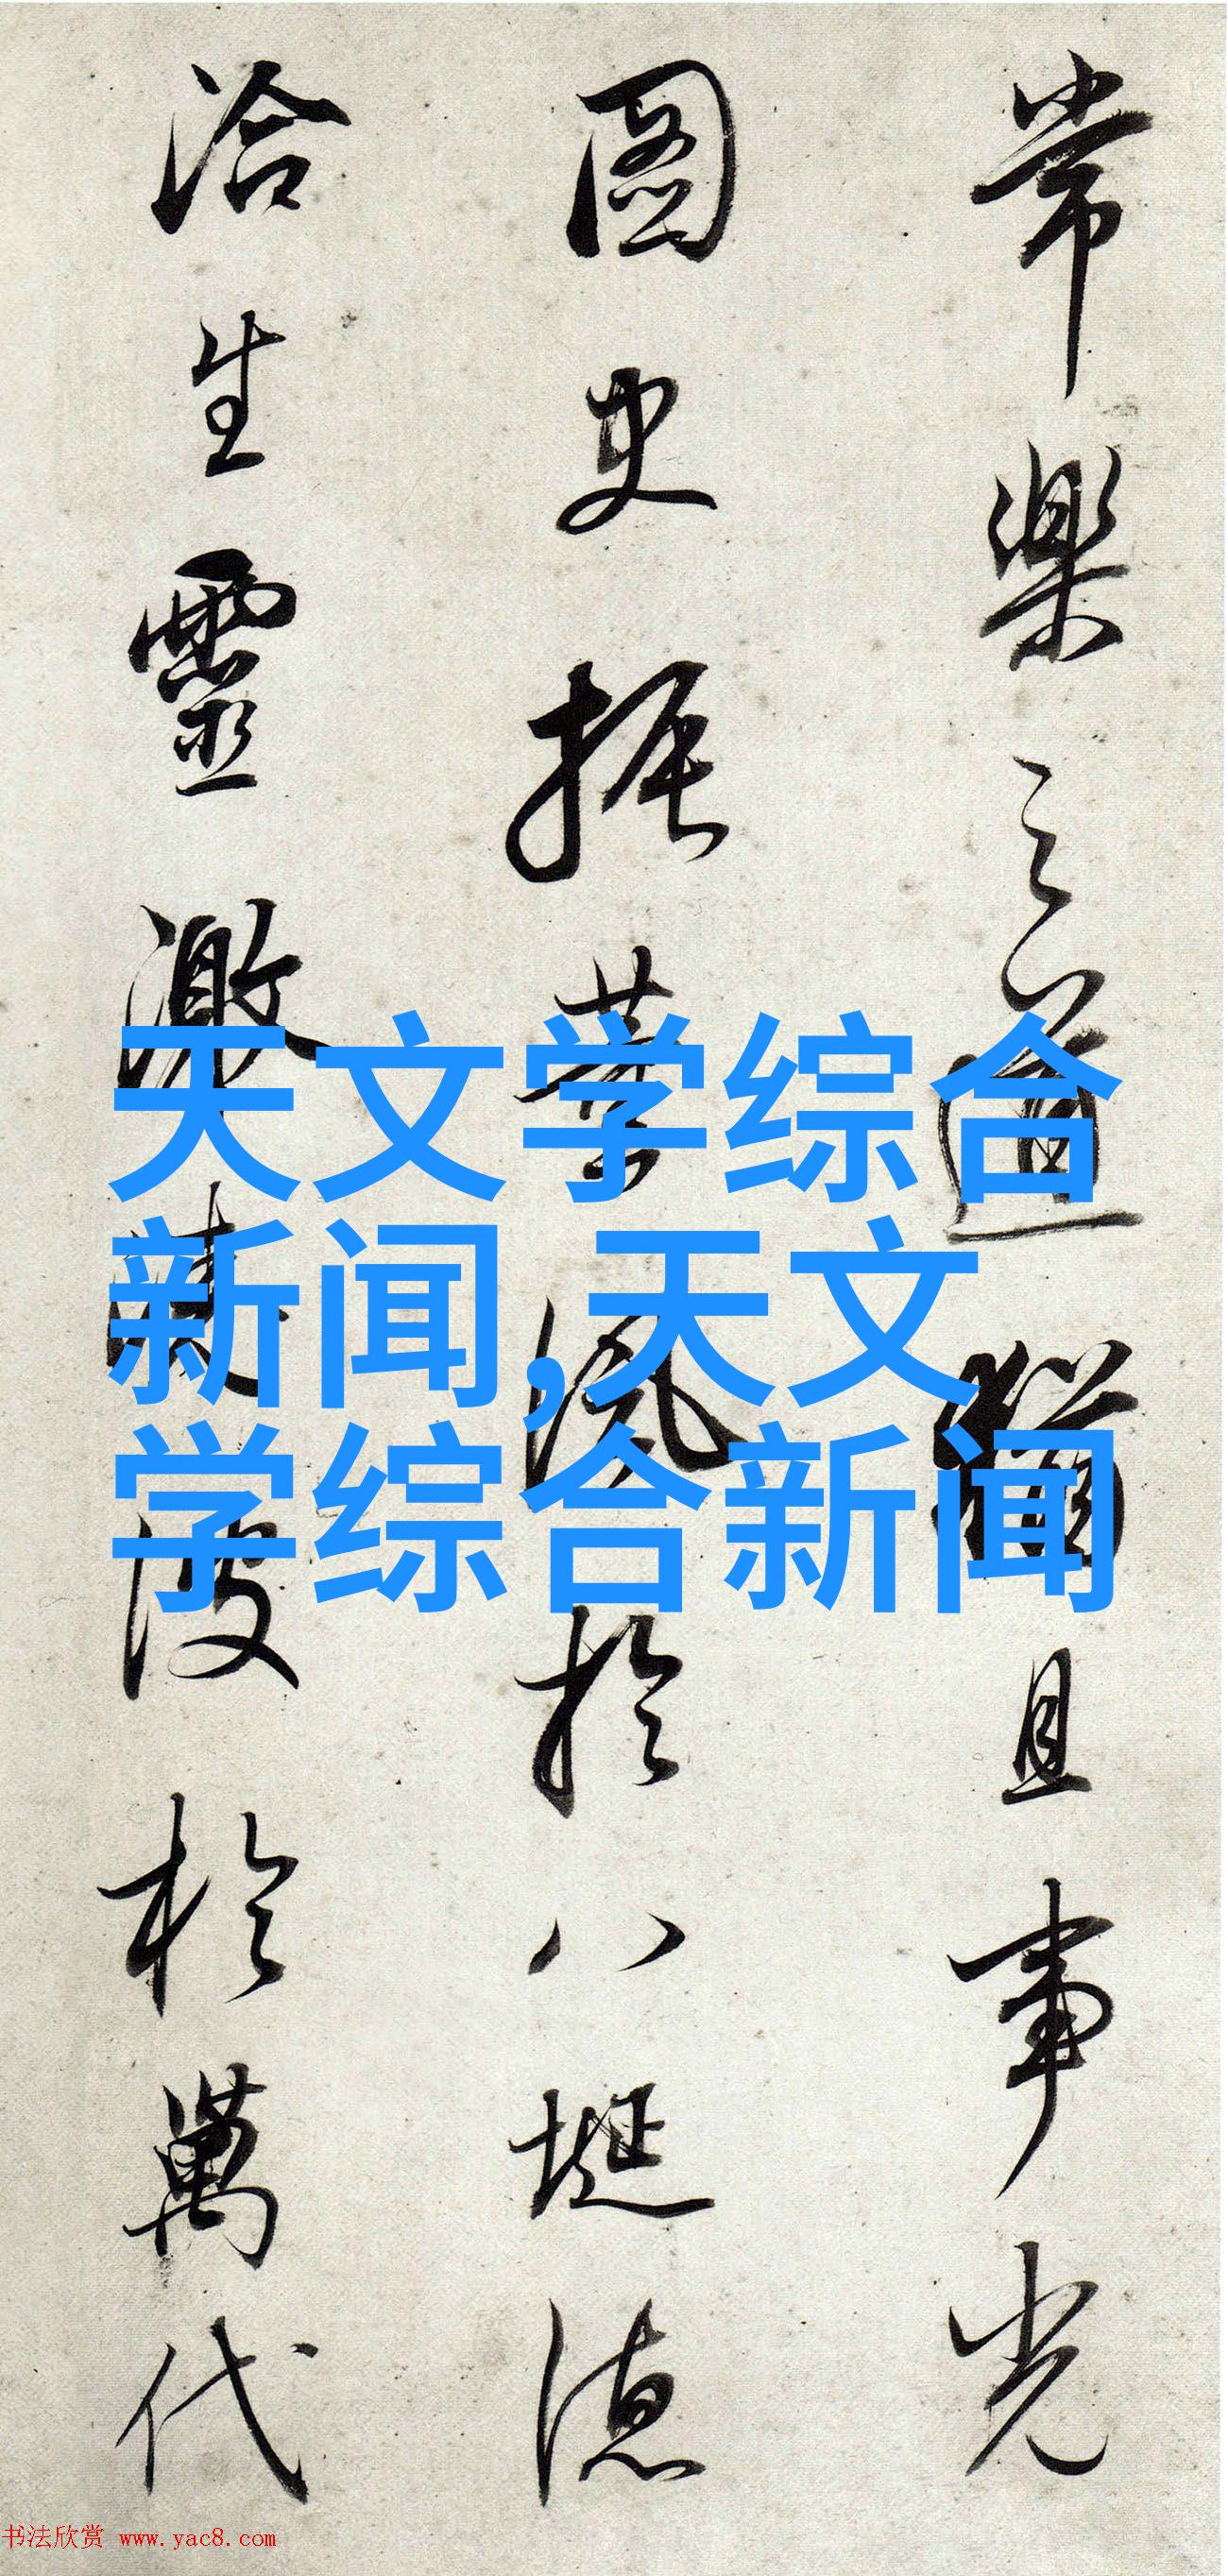 常樂之道猶且事光
圖史振葉風於八埏德
洽生靈激波於萬代
天文学综合
新闻,天文
学综合新闻
书法欣赏 www.yac8.com